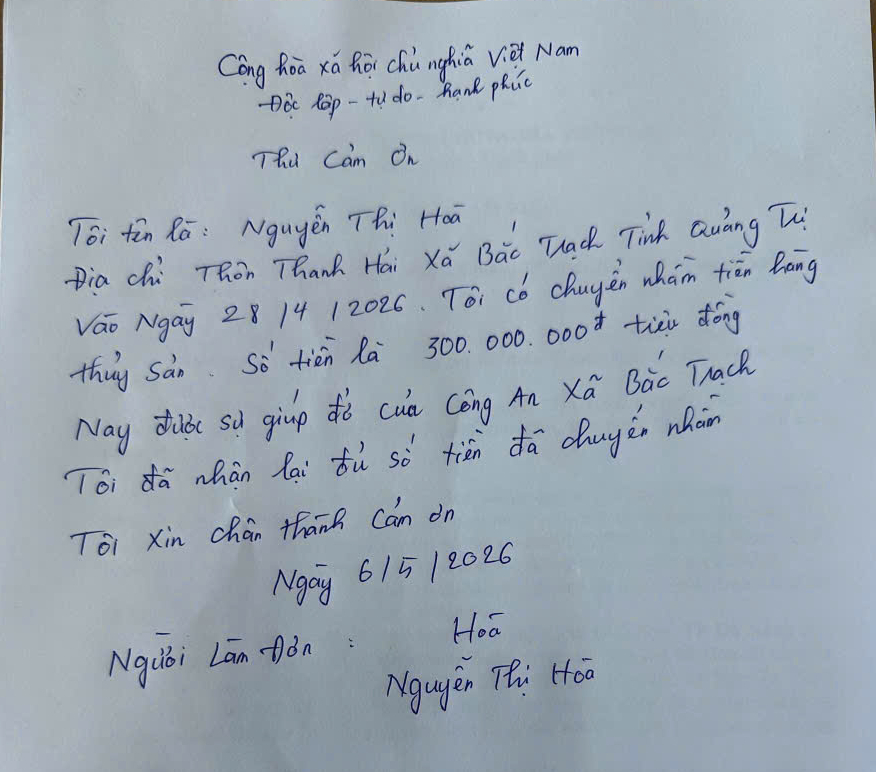 Cộng hòa xã hội chủ nghĩa Việt Nam
Độc lập - tự do - hạnh phúc
Thư Cảm Ơn
Tôi tên là: Nguyễn Thị Hoà
Địa chỉ Thôn Thanh Hải Xã Bắc Trạch Tỉnh Quảng Trị
Vào Ngày 28/4/2026. Tôi có chuyển nhầm tiền hàng
thủy sản. Số tiền là 300.000.000đ triệu đồng
Nay được sự giúp đỡ của Công An Xã Bắc Trạch
Tôi đã nhận lại đủ số tiền đã chuyển nhầm
Tôi xin chân thành cảm ơn
Ngày 6/5/2026
Người Làm Đơn : Hoà
Nguyễn Thị Hoà